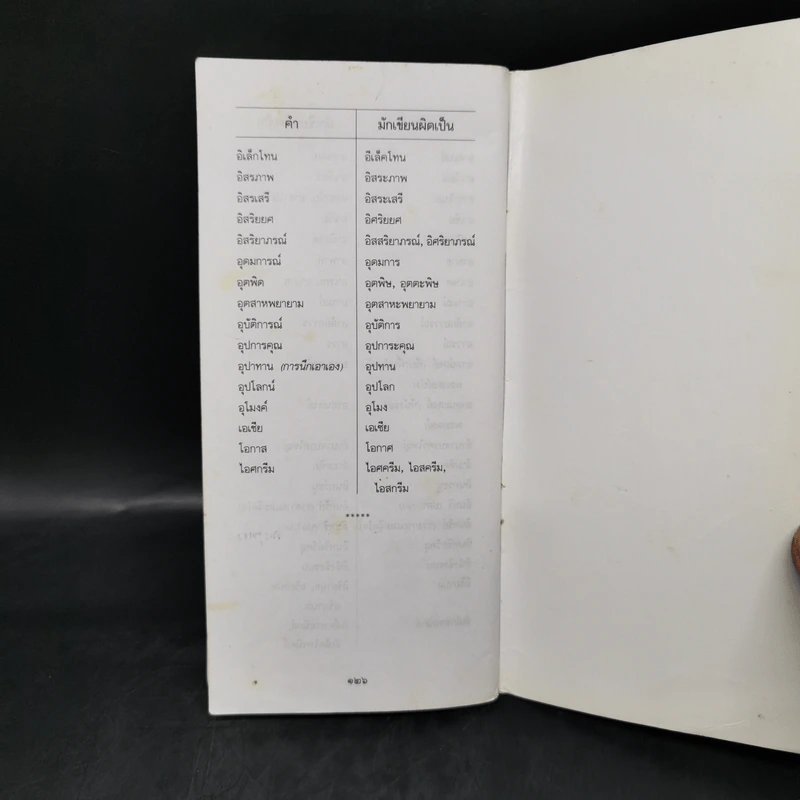 คำ มักเขียนผิดเป็น
อิเล็กโทน อีเล็คโทน
อิสรภาพ อิสระภาพ
อิสรเสรี อิสระเสรี
อิสริยยศ อิศริยยศ
อิสริยาภรณ์ อิสสริยาภรณ์, อิศริยาภรณ์
อุดมการณ์ อุดมการ
อุตพิด อุตพิษ, อุตตะพิษ
อุตสาหพยายาม อุตสาหะพยายาม
อุบัติการณ์ อุบัติการ
อุปการคุณ อุปการะคุณ
อุปาทาน (การนึกเอาเอง) อุปทาน
อุปโลกน์ อุปโลก
อุโมงค์ อุโมง
เอเชีย เอเซีย
โอกาส โอกาศ
ไอศกรีม ไอศครีม, ไอสครีม,
ไอสกรีม
*****
๑๒๖